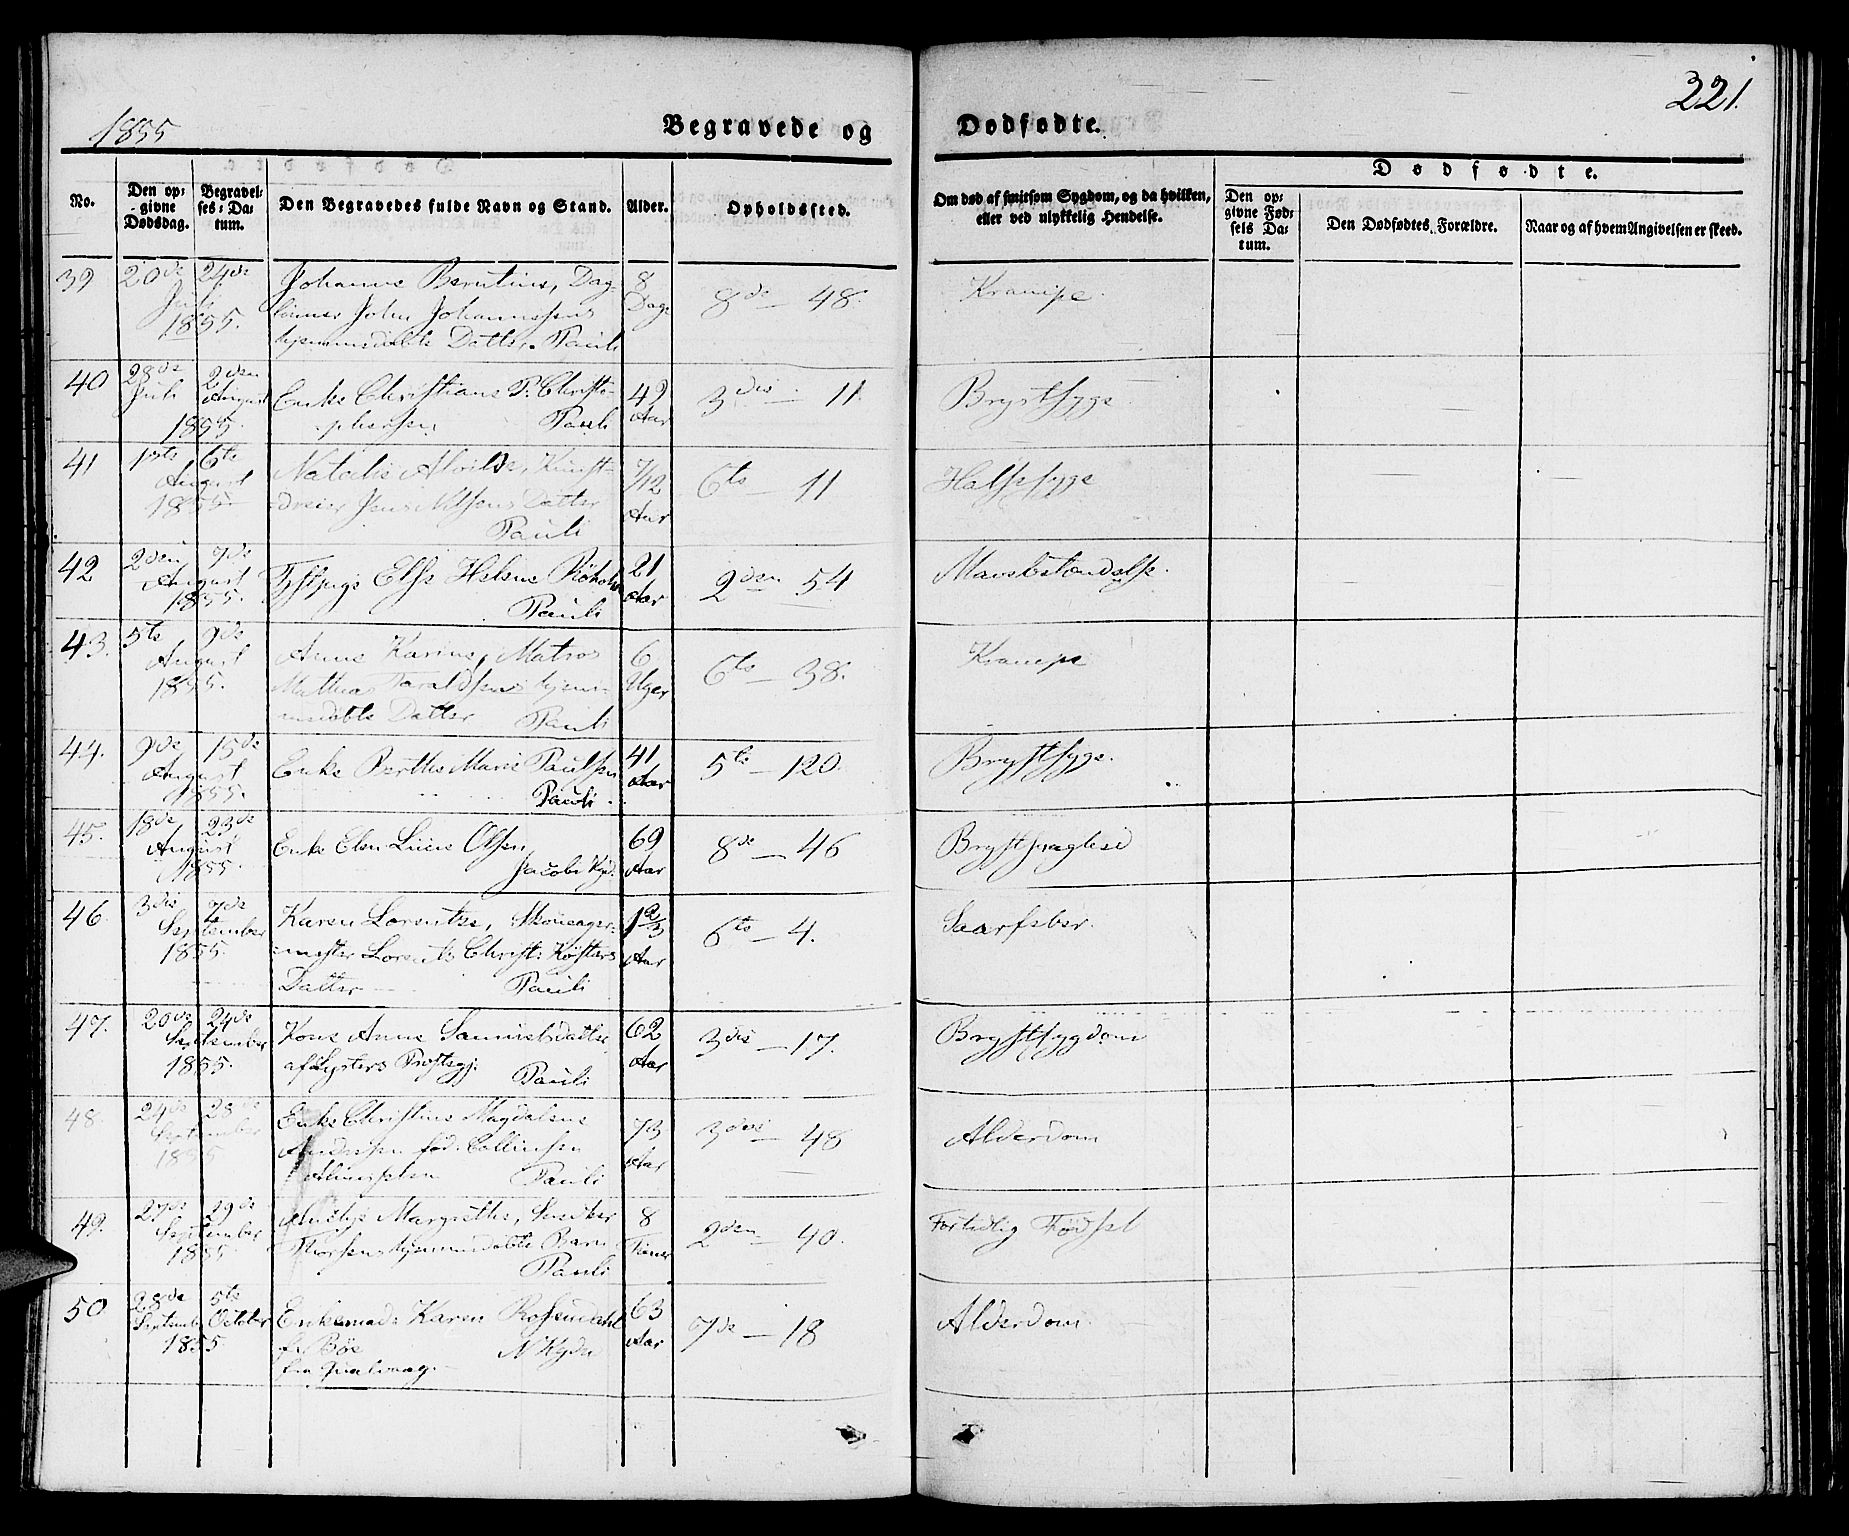 1855
Begravede og Dødfødte.
221.
No.
Den opgivne Dødsdag.
Begravelses-Datum.
Den Begravedes fulde Navn og Stand.
Alder.
Opholdssted.
Om død af smitsom Sygdom, og da hvilken, eller ved ulykkelig Hendelse.
Dødfødte.
Den opgivne Fødsels Datum.
Den Dødfødtes Forældre.
Naar og af hvem Angivelsen er skeed.
39 20de 24de Johanne Berntine, Dag- 8 8de – 48. Krampe.
Juli lønner John Johannessens Dage
1855. hjemmedøbte Datter. Pauli
40 28de 2den Enke Christiane P. Christo- 42 3die – 11. Brystsyge
Juli August phersen Pauli Aar
1855.
41 1ste 6te Natalie Alvilde, Kunst- 7/12 6te – 11 Halssyge
August dreier Jens Nilsens Datter Aar
1855. Pauli
42 2den 7de Elsе Helene 21 2den – 54
August Pauli Aar
1855.
43. 5te 9de Anne Karine, Matros 6 6te – 38. Krampe
August Mathias Taraldsens hjem- Uger
1855. medøbte Datter Pauli
44. 9de 15de Enke Berthe Marie Paulsen 41 5te – 120. Brystsyge.
August Pauli. Aar
1855.
45. 18de 23de Enke Elen Olsen 69 8de – 46
August Jacobi Aar
1855.
46. 3die 7de Karen Lorentze, 1 2/3 6te – 4.
September mester Lorentz Christ: Køsters Aar
1855. Datter Pauli
47. 20de 24de Kone Anne 62 3die – 17. Brystsygdom
September af Lysters Præstegj: Pauli Aar
1855.
48. 24de 28de Enke Christine Magdalene 73 3die – 48 Alderdom
September fød: Aar
1855 Pauli
49. 27de 29de Margrethe, 8 2den – 40. Fortidlig Fødsel
September hjemmedøbte Barn Timer
1855 Pauli
50 28de 5te Karen Rosendahl 63 7de – 18 Alderdom
September October f. Bøe Aar
1855 fra